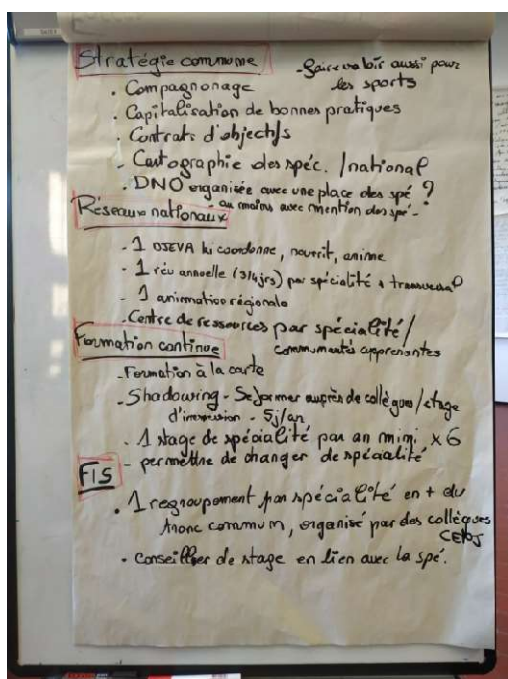 Stratégie commune
- Faire valoir aussi pour
les sports
. Compagnonage
. Capitalisation de bonnes pratiques
. Contrats d'objectifs
- Cartographie des spéc. /national
. DNO organisée avec une place des spé ?
au moins avec mention des spé -
Réseaux nationaux
- 1 DSEVA qui coordonne, nourrit, anime
- 1 réu annelle (3/4jrs) par spécialité + transversal
- 1 animation régionale
- Centre de ressources par spécialité /
communautés apprenantes
Formation continue
- Formation à la carte
- Shadowing - Se former auprès de collègues / stage
d'immersion - 5j/an
- 1 stage de spécialité par an mini x 6
- permettre de changer de spécialité
FIS
. 1 regroupement par spécialité en + du
tronc commum, organisé par des collègues
CEPJ
. conseiller de stage en lien avec la spé.